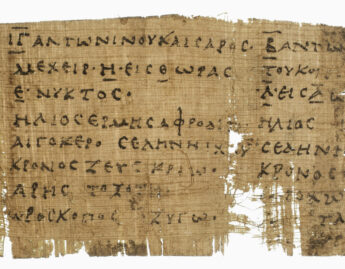 ΙΓ ΑΝΤΩΝΙΝΟΥ ΚΑΙΣΑΡΟΣ·
ΜΕΧΕΙΡ·Η·ΕΙΣ Θ ΩΡΑΣ
Ε ΝΥΚΤΟΣ·
ΗΛΙΟΣ ΕΡΜΗΣ ΑΦΡΟΔΙ
ΑΙΓΟΚΕΡΩ ΣΕΛΗΝΗ
ΚΡΟΝΟΣ ΖΕΥΣ ΚΡΙΩ
ΑΡΗΣ
ΩΡΟΣΚΟΠΟΣ ΖΥΓΩ·
Β ΑΝΤΩ
ΤΟΥ ΚΟ
ΕΙΣ
ΗΛΙΟΣ
ΣΕΛΗΝ
ΚΡΟΝΟΣ